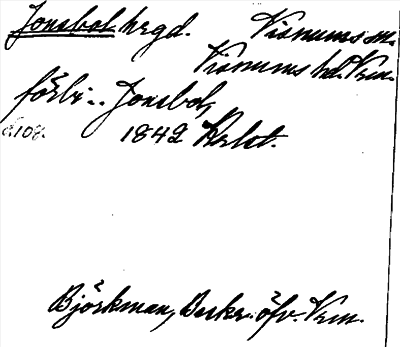 Jonsbol hrgd. Visnums sn.
Visnums hd. Vrm.
förbi.. Jonsbol,
s. 108. 1842 Krlst.
Björkman, Beskr. öfv. Vrm.